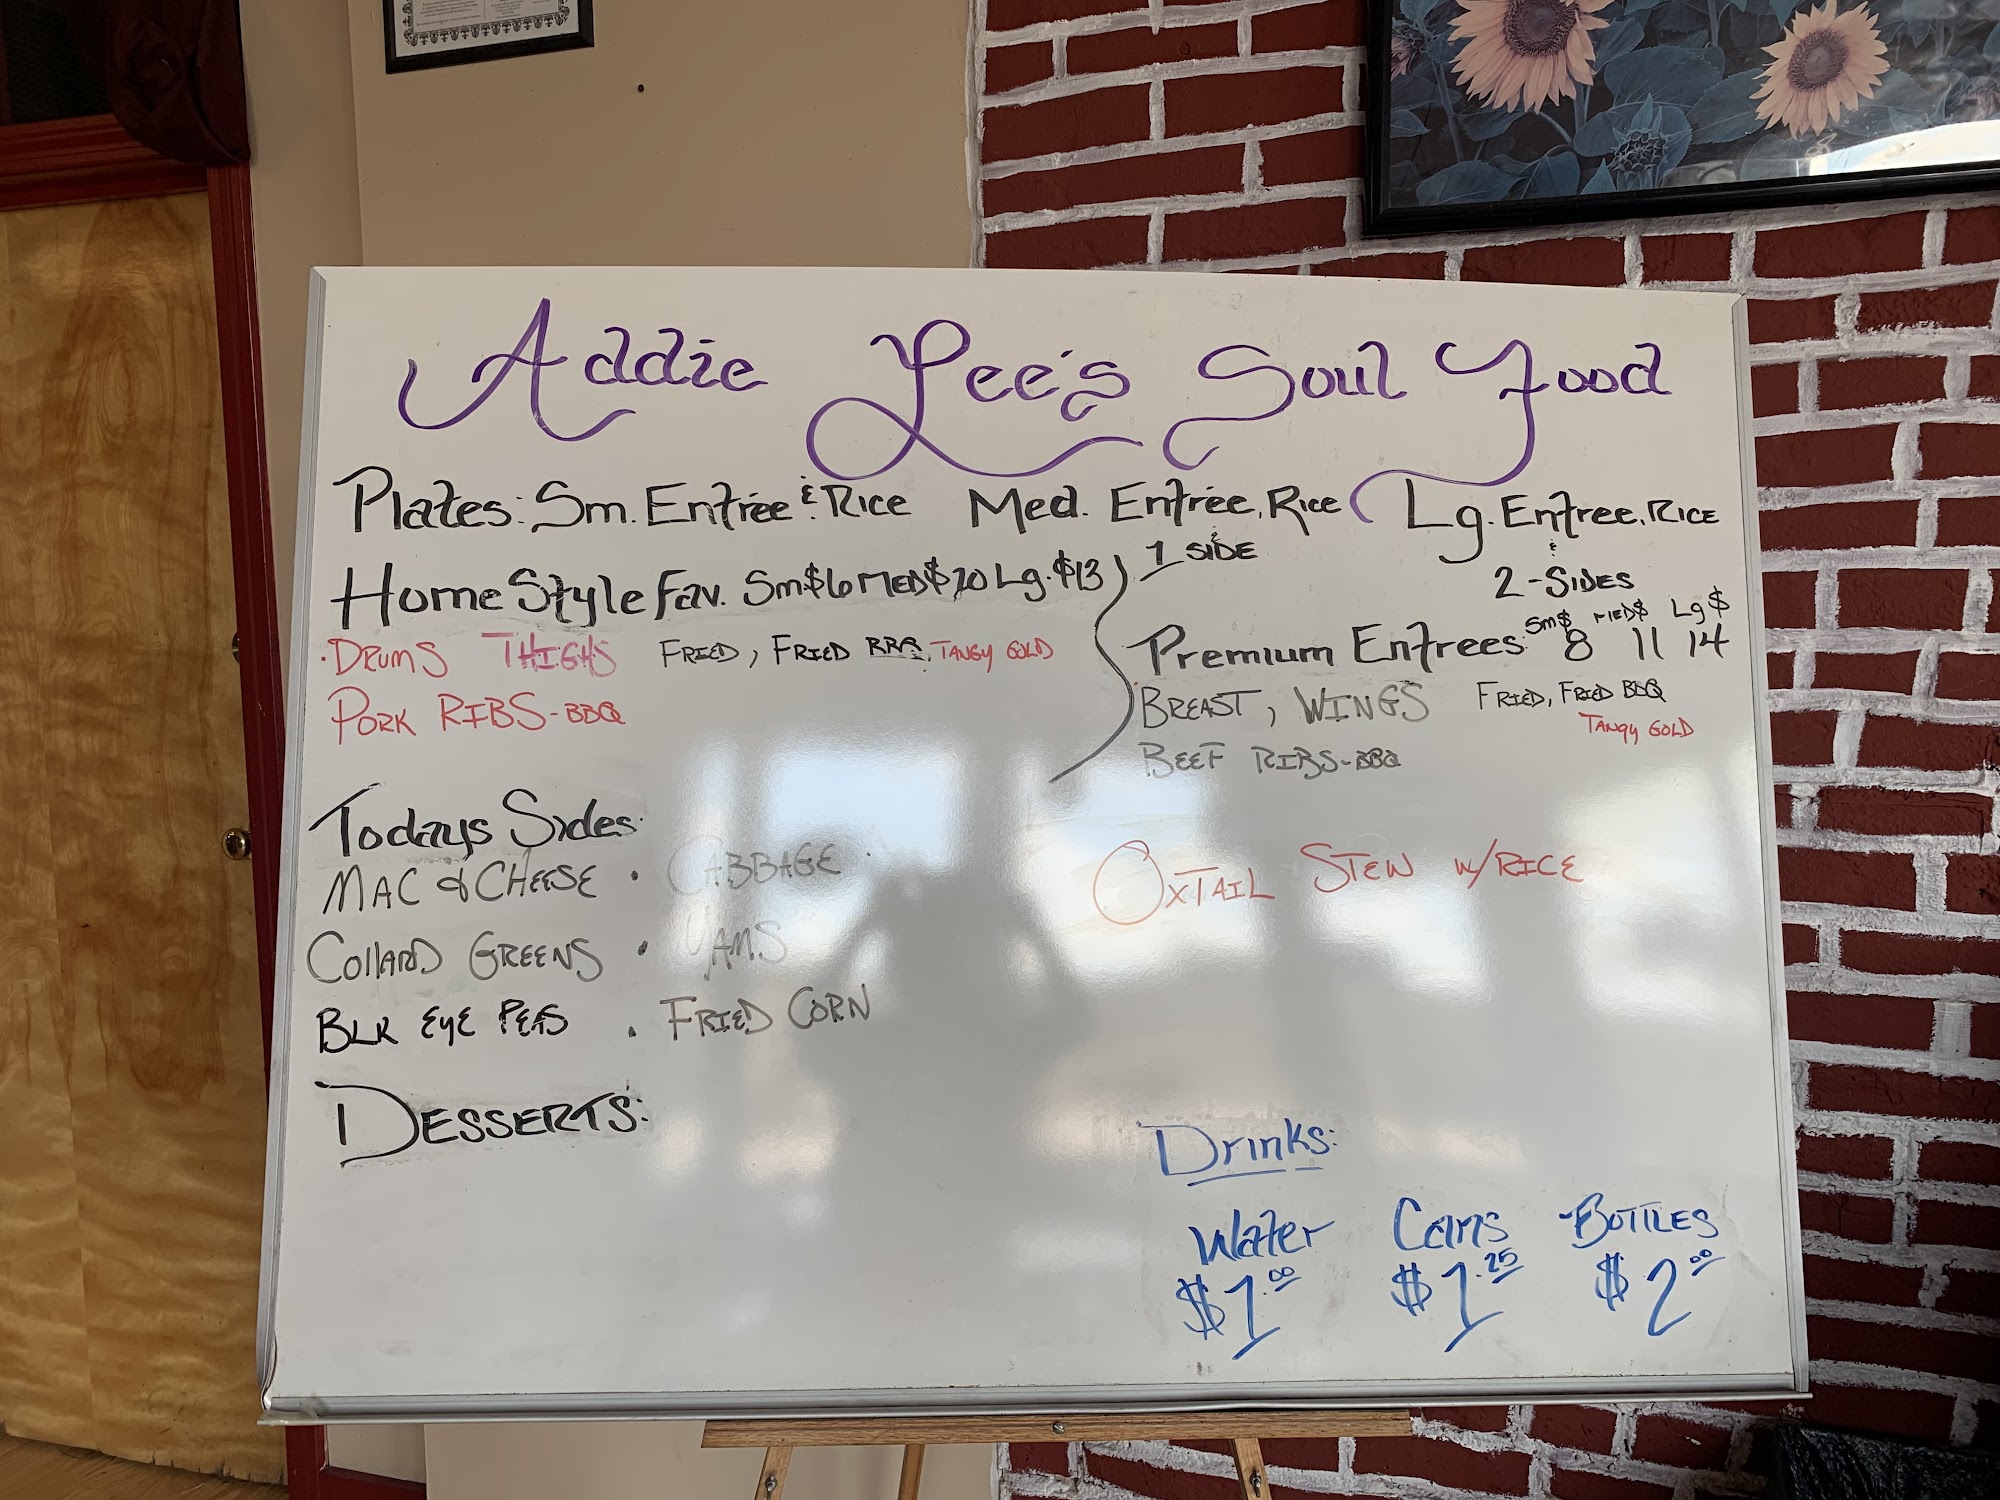 Addie Lee's Soul Food
Plates: Sm. Entrée & Rice Med. Entrée, Rice & 1 SIDE Lg. Entree, RICE & 2-SIDES
Home Style Fav. Sm $6 MED $10 Lg. $13
• DRUMS THIGHS FRIED, FRIED BBQ, TANGY GOLD
PORK RIBS-BBQ
Premium Entrees: Sm $ 8 MED $ 11 Lg $ 14
BREAST, WINGS FRIED, FRIED BBQ
TANGY GOLD
BEEF RIBS-BBQ
OXTAIL STEW W/RICE
Todays Sides:
MAC & CHEESE • CABBAGE
COllARD GREENS • YAMS
BLK EyE PEAS • FRIED CORN
DESSERTS:
Drinks:
Water Cans BOTTLES
$1.00 $1.25 $2.00